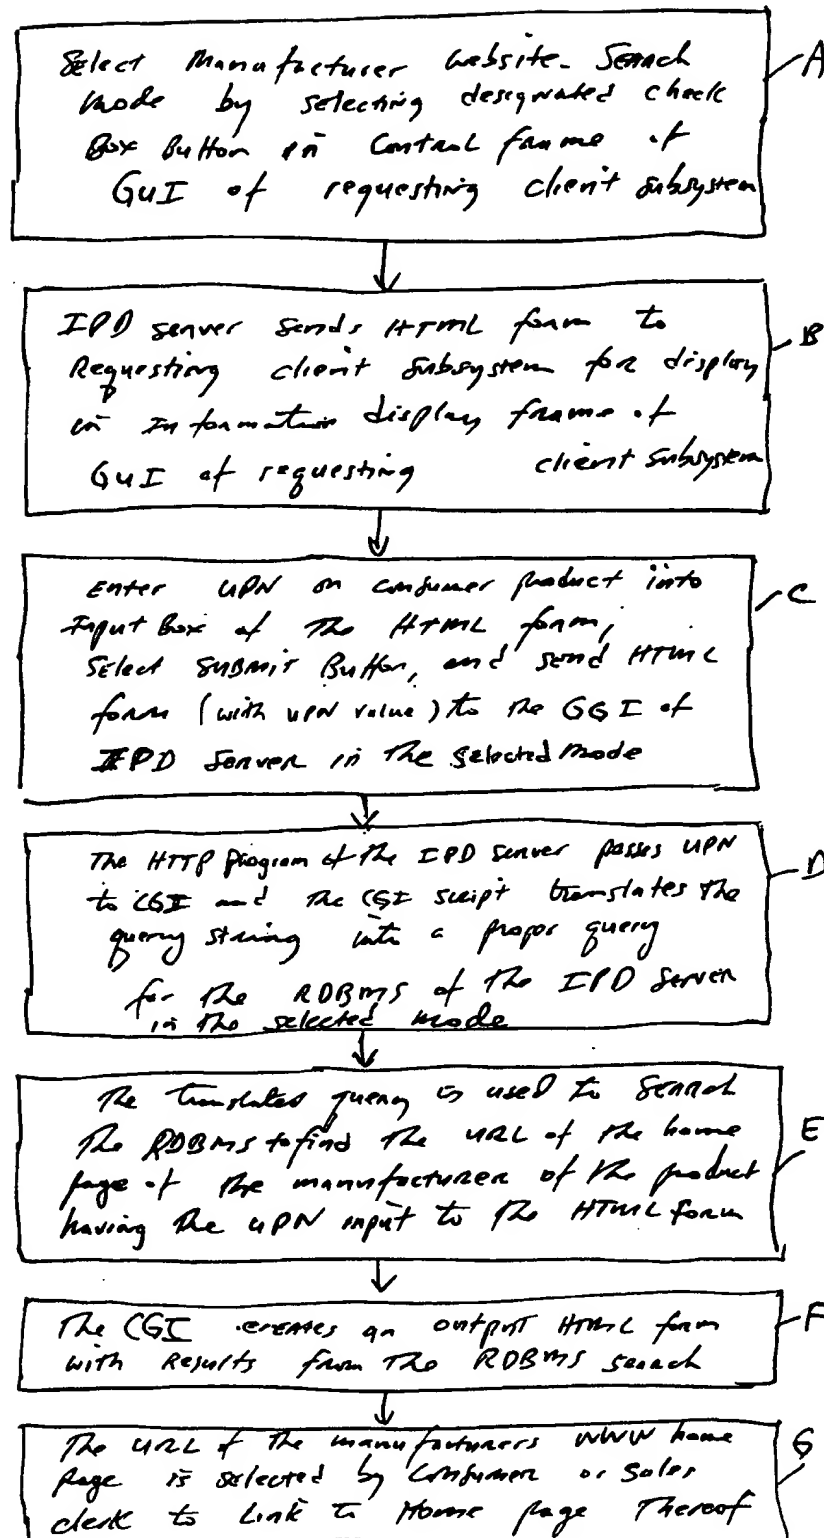 Select Manufacturer Website-Search
mode by selecting designated check
Box Button in Control frame of
GUI of requesting client subsystem
A
IPD server sends HTML form to
Requesting client subsystem for display
in Information display frame of
GUI of requesting client subsystem
B
Enter UPN on consumer product into
Input Box of the HTML form,
Select SUBMIT Button, and send HTML
form (with UPN value) to the GGI of
IPD Server in the selected mode
C
The HTTP program of the IPD server passes UPN
to CGI and the CGI script translates the
query string into a proper query
for the RDBMS of the IPD Server
in the selected mode
D
The translated query is used to Search
the RDBMS to find the URL of the home
page of the manufacturer of the product
having the UPN input to the HTML form
E
The CGI creates an output HTML form
with Results from the RDBMS search
F
The URL of the manufacturers WWW home
Page is selected by Consumer or Sales
clerk to Link to Home page Thereof
G